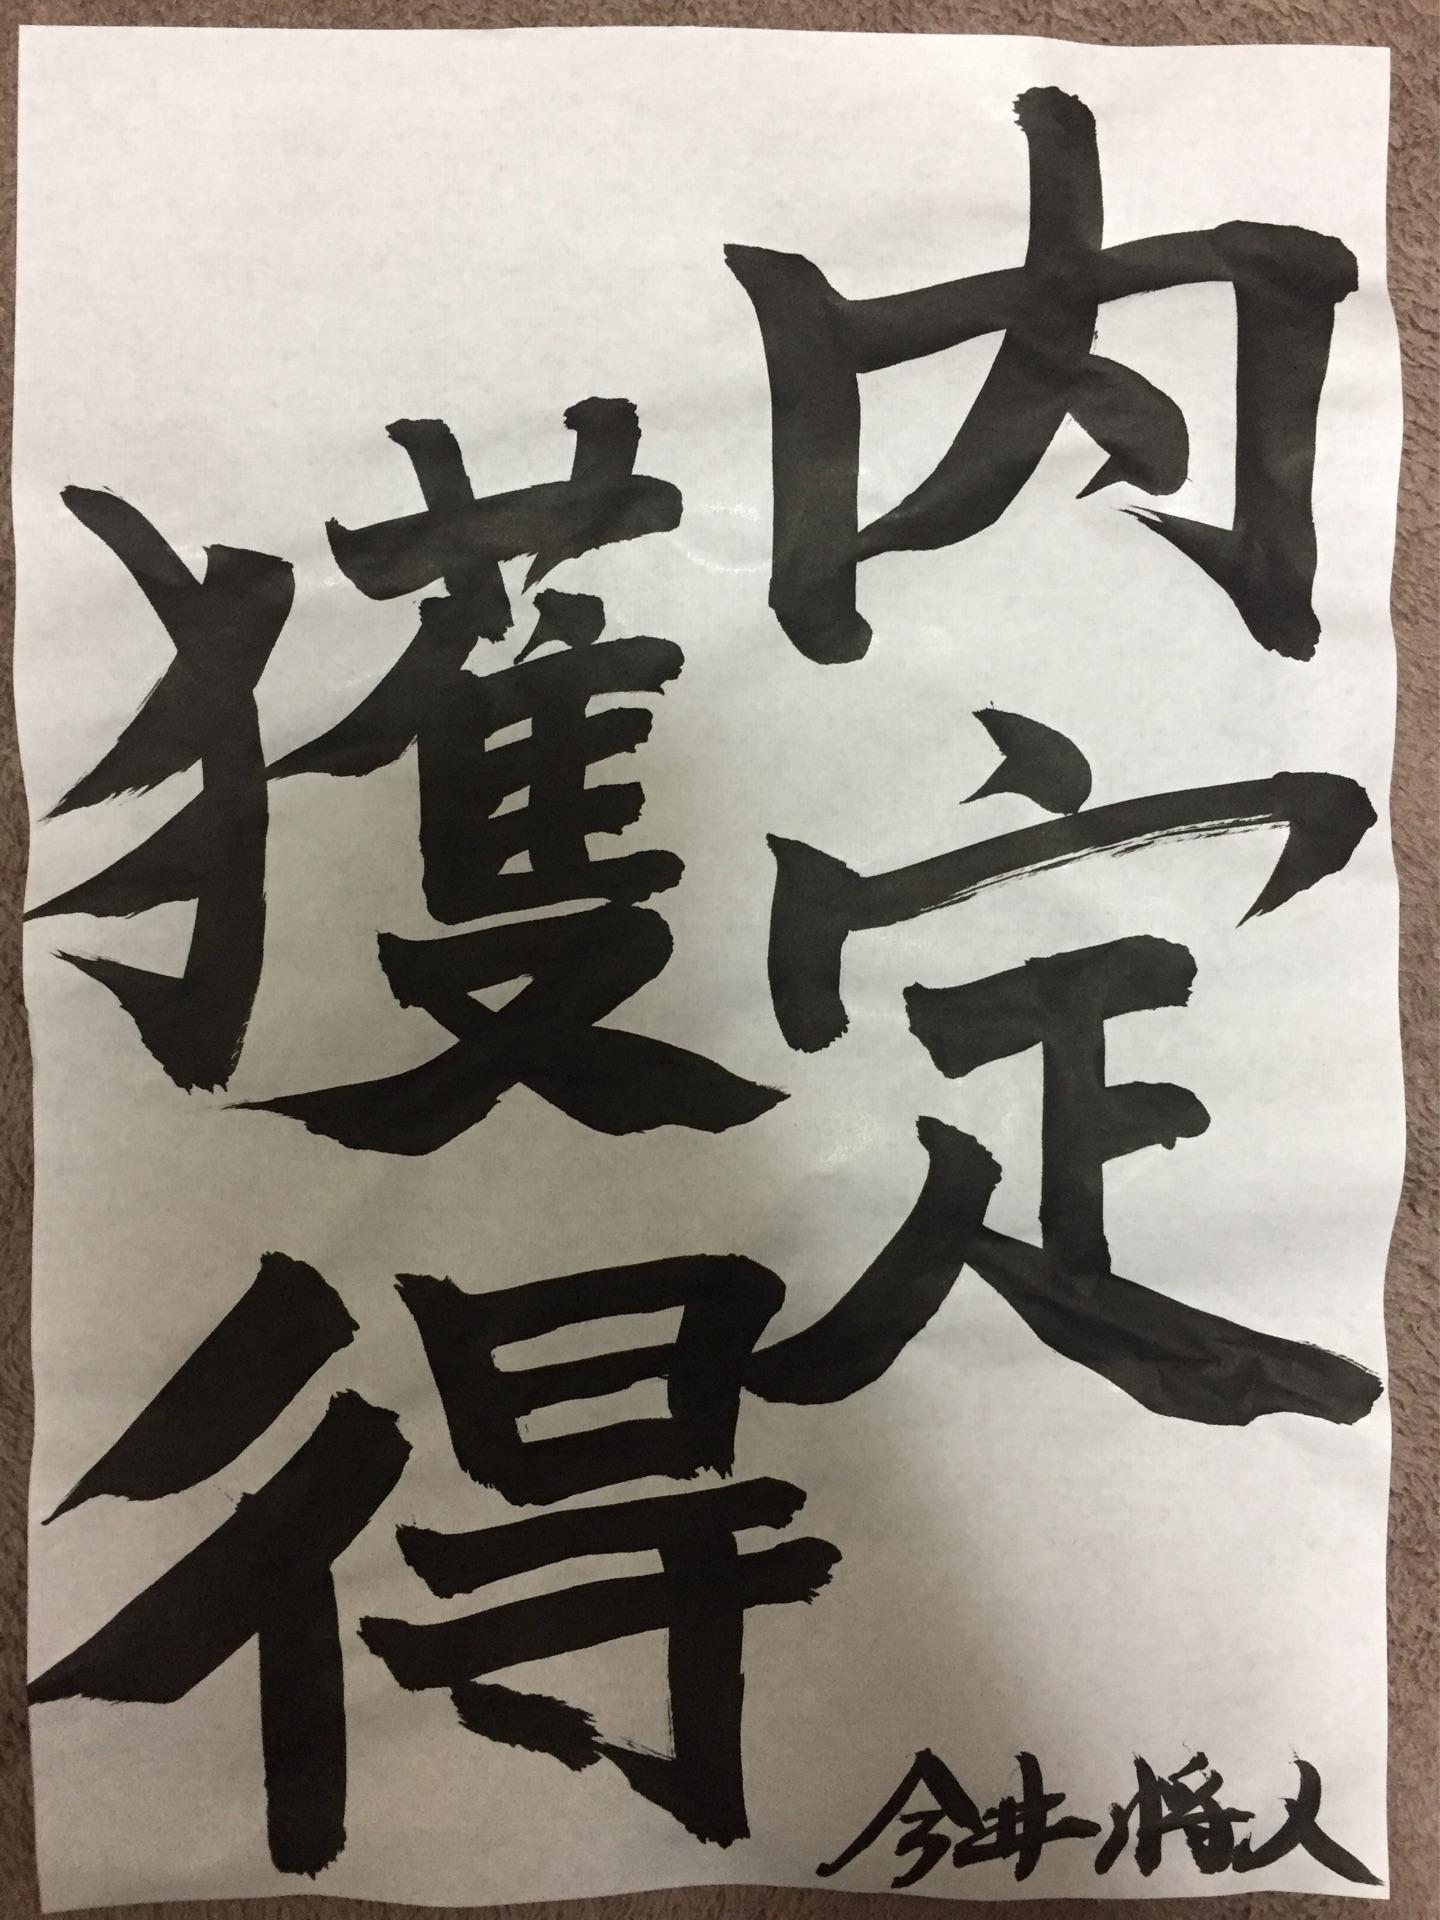 内定
獲得
今井将人